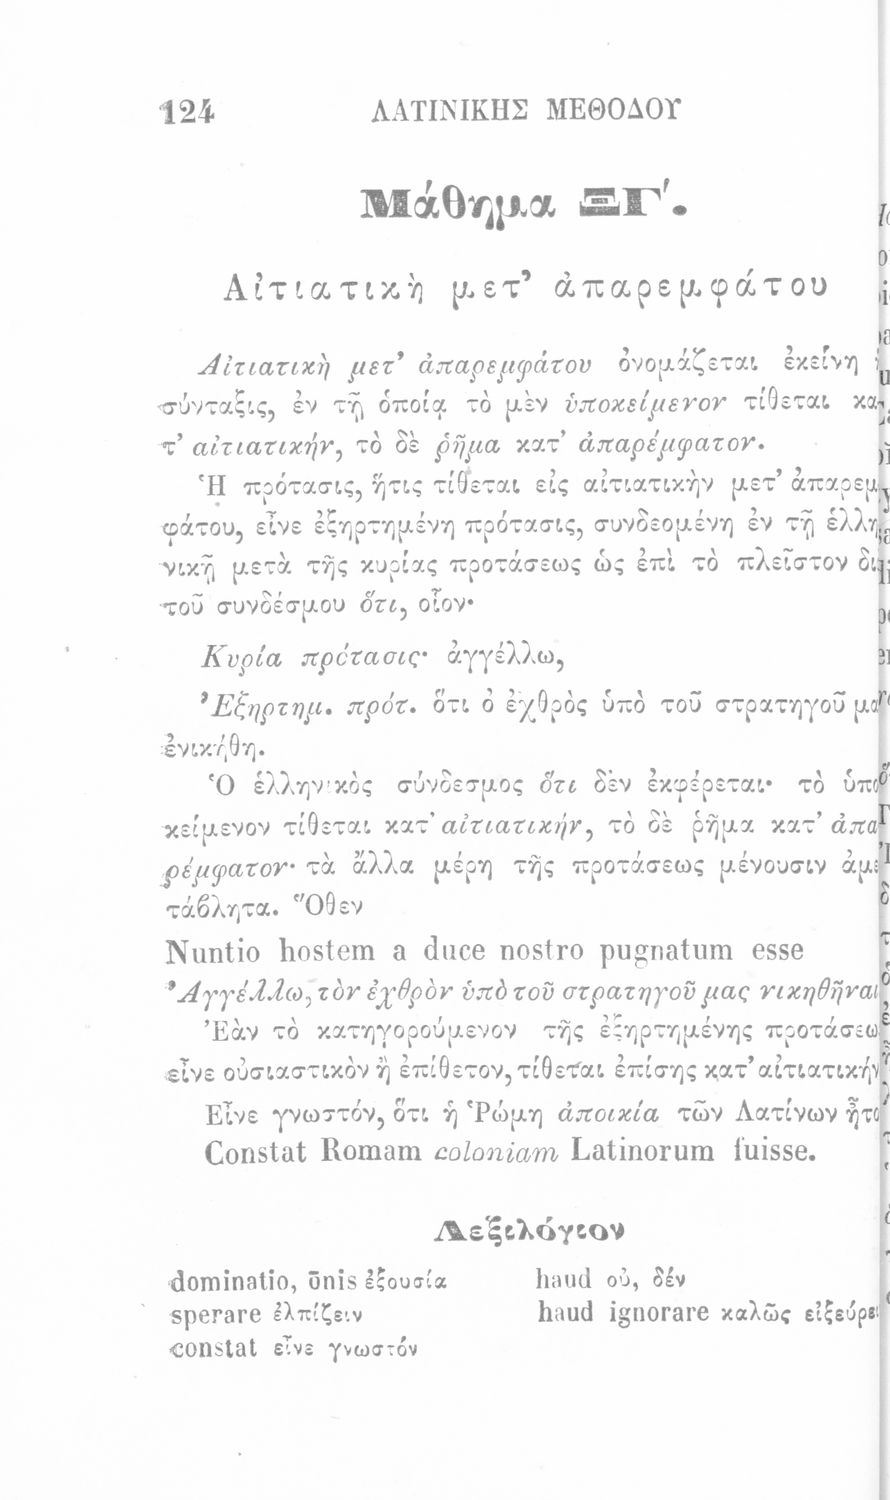 124 ΛΑΤΙΝΙΚΗΣ ΜΕΘΟΔΟΥ
Μάθημα ΞΓʹ.
Αἰτιατικὴ μετ’ ἀπαρεμφάτου
Αἰτιατικὴ μετ’ ἀπαρεμφάτου ὀνομάζεται ἐκείνη ἡ
σύνταξις, ἐν τῇ ὁποίᾳ τὸ μὲν ὑποκείμενον τίθεται κα-
τ’ αἰτιατικήν, τὸ δὲ ῥῆμα κατ’ ἀπαρέμφατον.
Ἡ πρότασις, ἥτις τίθεται εἰς αἰτιατικὴν μετ’ ἀπαρεμ-
φάτου, εἶνε ἐξηρτημένη πρότασις, συνδεομένη ἐν τῇ ἑλλη-
νικῇ μετὰ τῆς κυρίας προτάσεως ὡς ἐπὶ τὸ πλεῖστον δι
τοῦ συνδέσμου ὅτι, οἷον·
Κυρία πρότασις· ἀγγέλλω,
Ἐξηρτημ. πρότ. ὅτι ὁ ἐχθρὸς ὑπὸ τοῦ στρατηγοῦ μα
ἐνικήθη.
Ὁ ἑλληνικὸς σύνδεσμος ὅτι δὲν ἐκφέρεται· τὸ ὑπο
κείμενον τίθεται κατ’ αἰτιατικήν, τὸ δὲ ῥῆμα κατ’ ἀπα
ρέμφατον· τὰ ἄλλα μέρη τῆς προτάσεως μένουσιν ἀμε
τάβλητα. Ὅθεν
Nuntio hostem a duce nostro pugnatum esse
Ἀγγέλλω, τὸν ἐχθρὸν ὑπὸ τοῦ στρατηγοῦ μας νικηθῆναι
Ἐὰν τὸ κατηγορούμενον τῆς ἐξηρτημένης προτάσεω
εἶνε οὐσιαστικὸν ἢ ἐπίθετον, τίθεται ἐπίσης κατ’ αἰτιατικήν
Εἶνε γνωστόν, ὅτι ἡ Ῥώμη ἀποικία τῶν Λατίνων ἦτο
Constat Romam coloniam Latinorum fuisse.
Λεξιλόγιον
dominatio, ōnis ἐξουσία haud οὐ, δέν
sperare ἐλπίζειν haud ignorare καλῶς εἰξεύρει
constat εἶνε γνωστόν